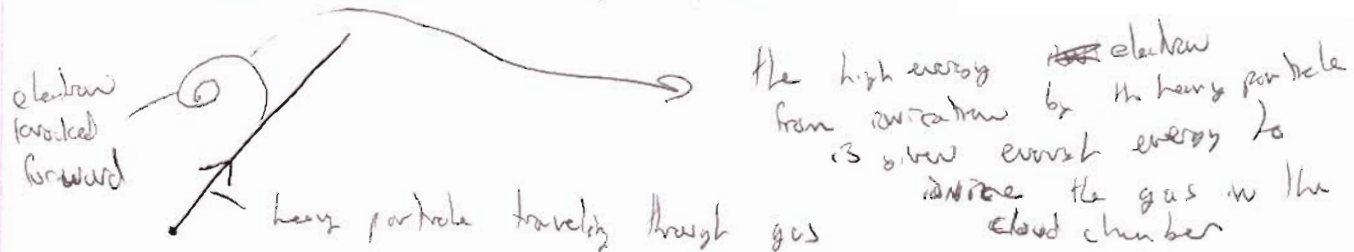 electron
knocked
forward
heavy particle traveling through gas
the high energy electron
from ionization by the heavy particle
is given enough energy to
ionize the gas in the
cloud chamber